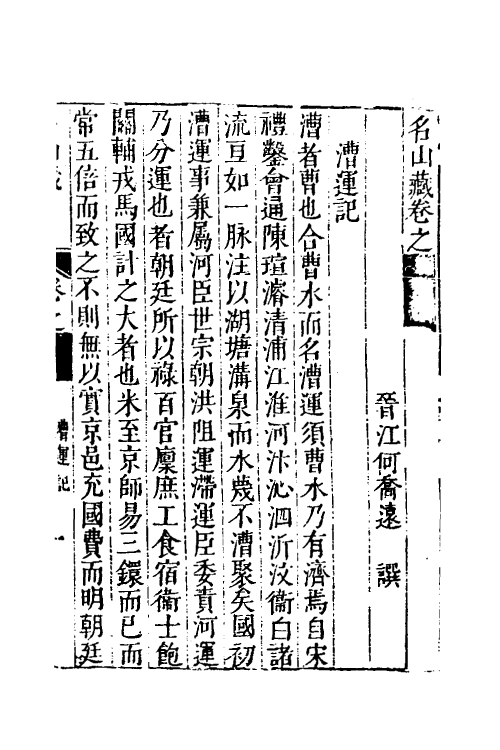 名山藏卷之
晉江何喬遠　譔
漕運記
漕者曹也合曹水而名漕運須曹水乃有濟焉自宋
禮鑿會通陳瑄濬清浦江淮河汴沁泗沂汶衞白諸
流亘如一脉注以湖塘溝泉而水幾不漕聚矣國初
漕運事兼屬河臣世宗朝洪阻運滯運臣委責河運
乃分運也者朝廷所以祿百官廩庶工食宿衞士飽
關輔戎馬國計之大者也米至京師易三鐶而已而
常五倍而致之不則無以實京邑充國費而明朝廷
漕運記　一